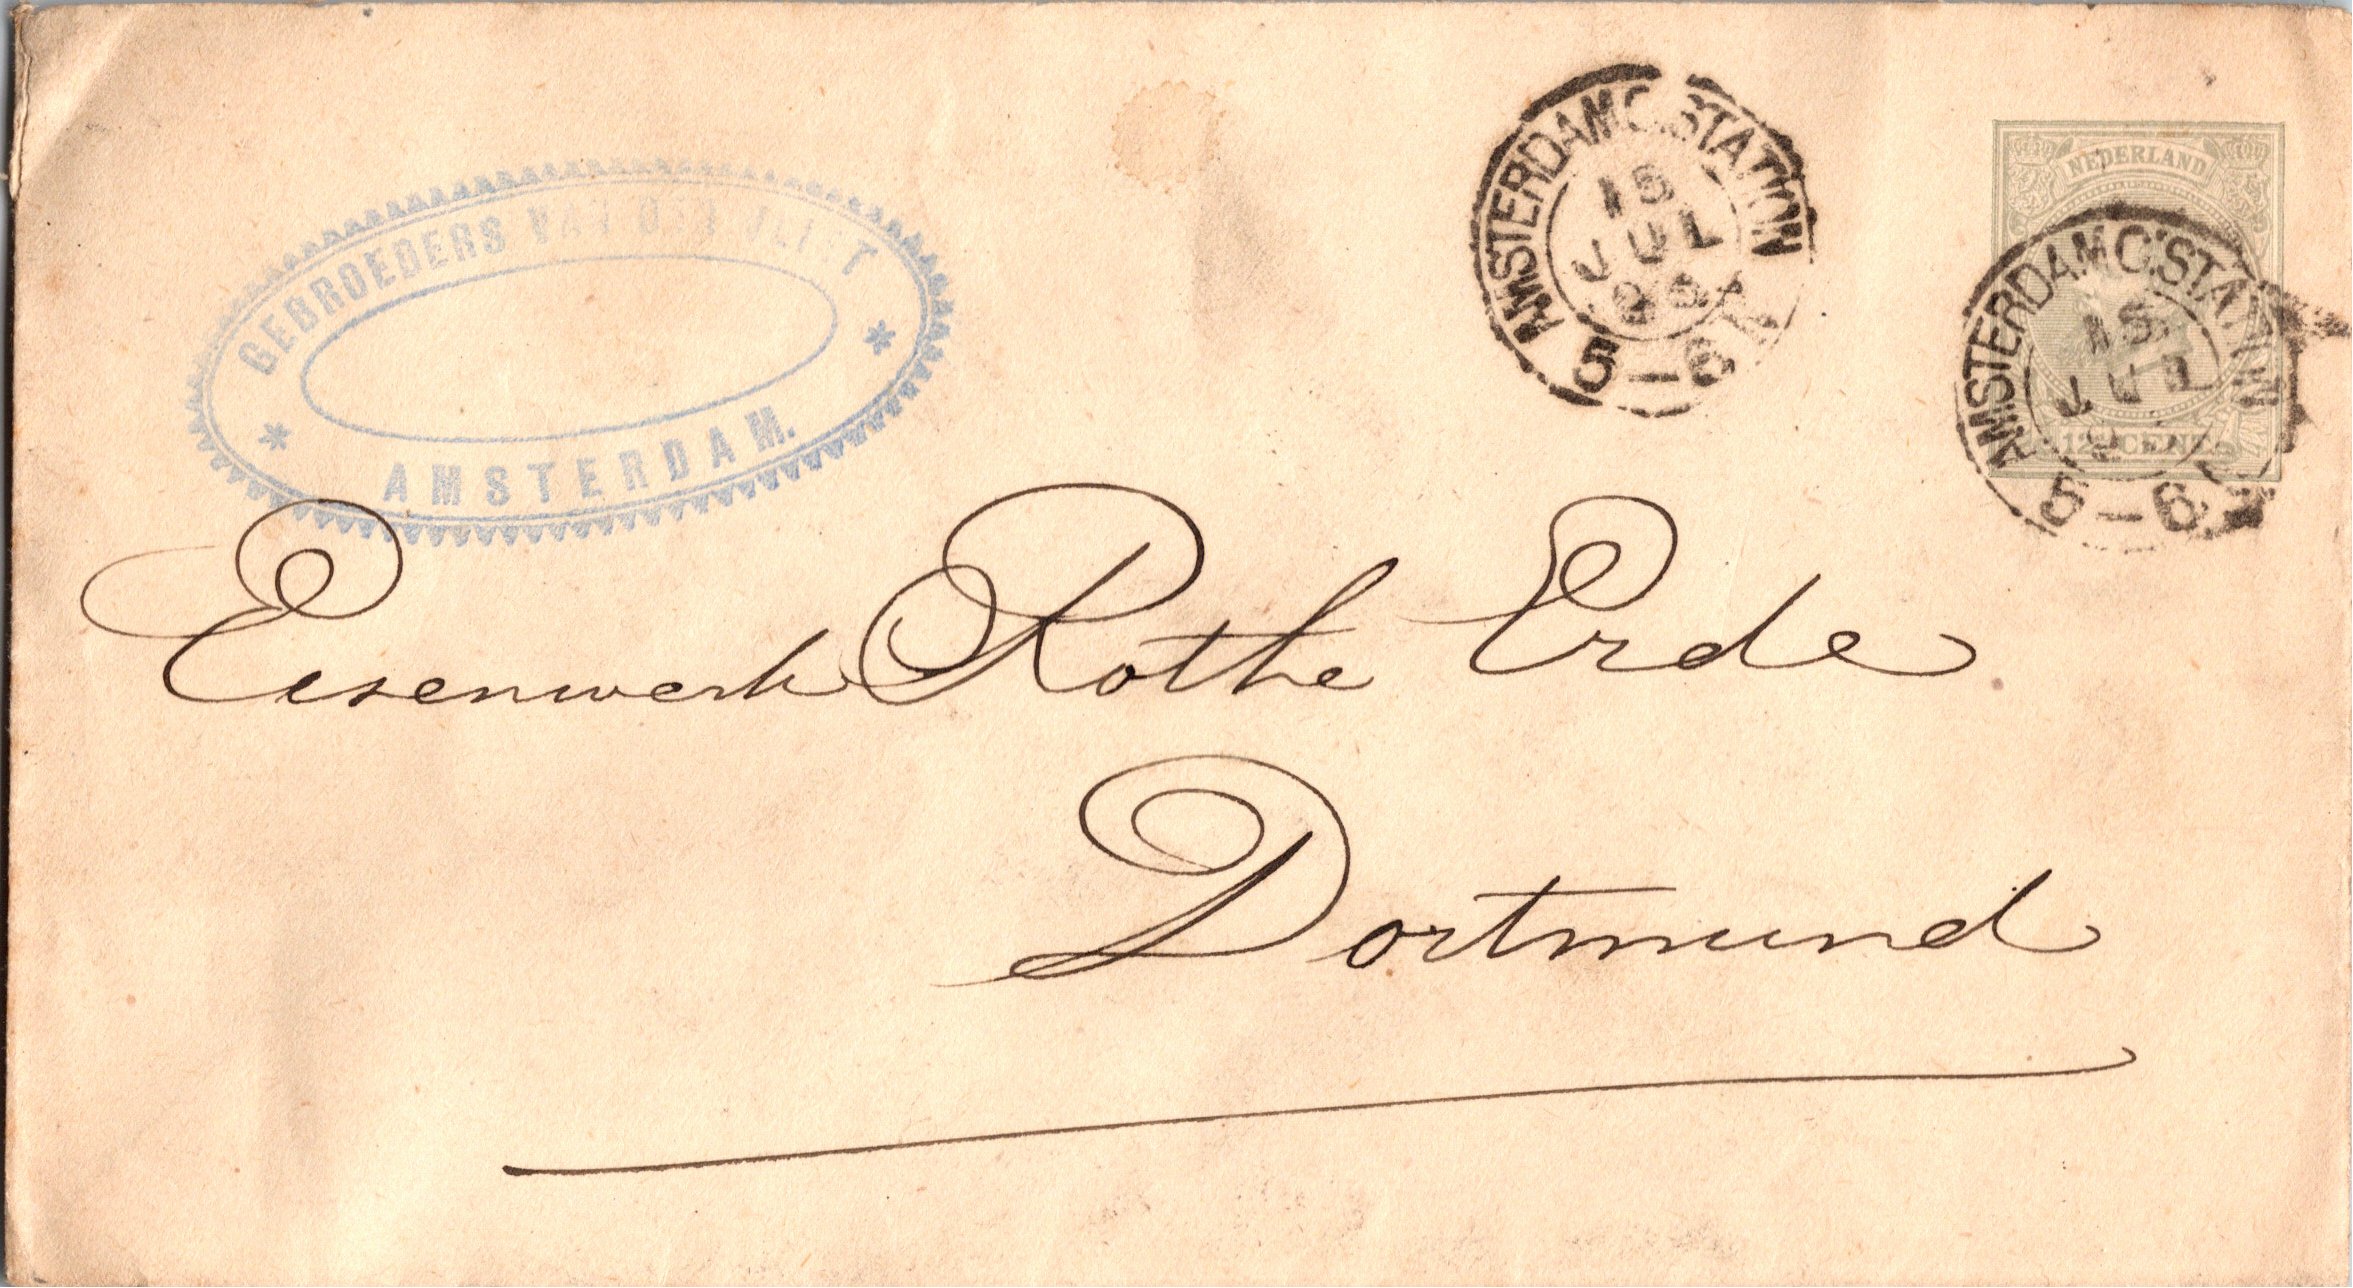 GEBROEDERS VAN DER VLIET
* AMSTERDAM. *
AMSTERDAM C. STATION
15
JUL
5-6
NEDERLAND
12½ CENT
AMSTERDAM C. STATION
15
JUL
5-6
Eisenwerk Rothe Erde
Dortmund